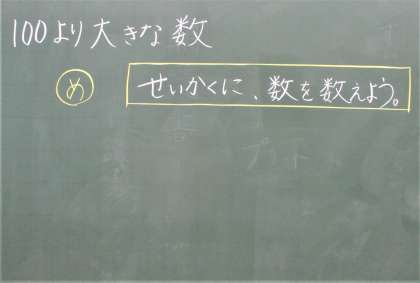 100より大きな数
め せいかくに、数を数えよう。